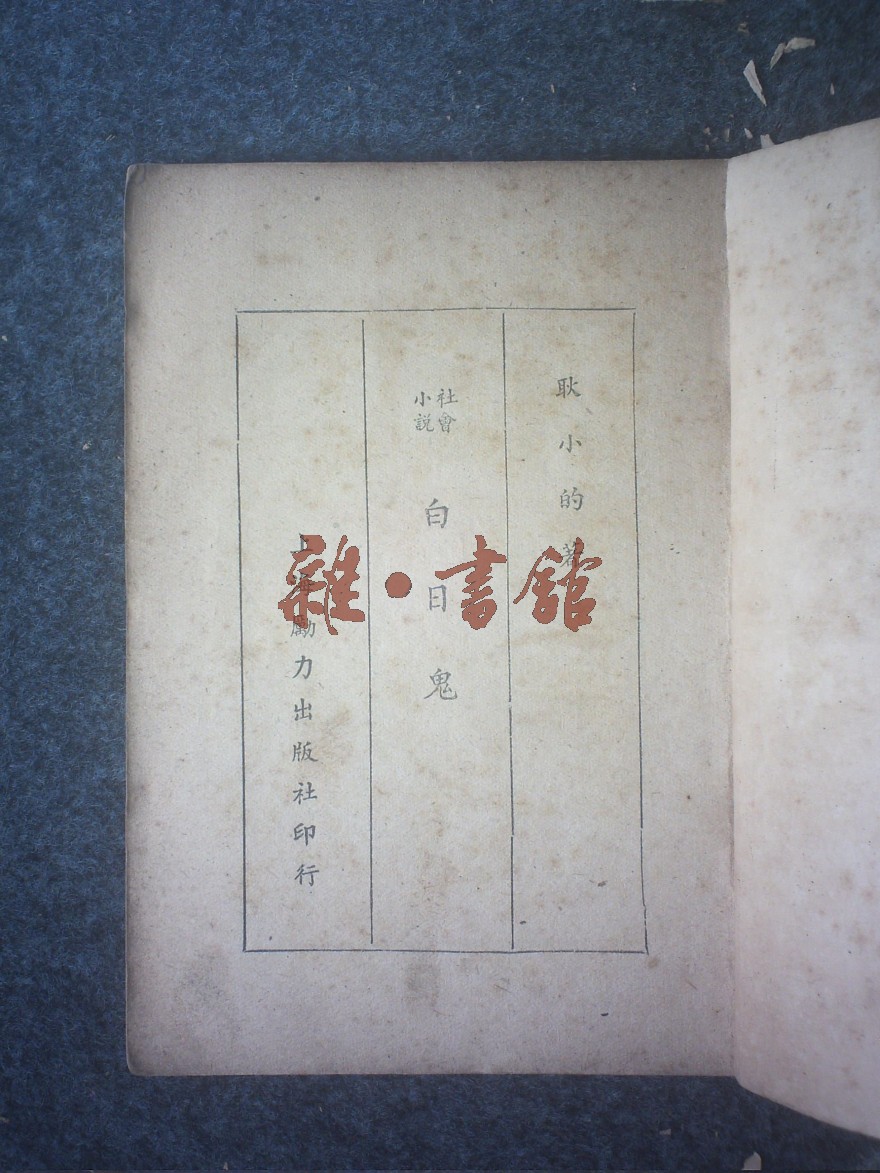 耿小的著
社會
小説
白日鬼
上海勵力出版社印行
雜·書館